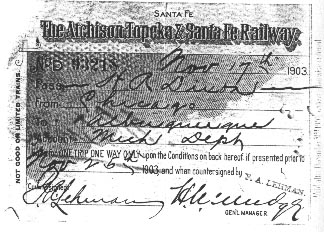 SANTA FE
The Atchison Topeka & Santa Fe Railway.
Nov 17th 1903.
Pass
From Chicago
To Albuquerque
Account Mech Dept
Good for ONE TRIP ONE WAY ONLY upon the Conditions on back hereof if presented prior to
1903 and when countersigned by F. A. LEHMAN.
Countersigned
GEN'L MANAGER
NOT GOOD ON LIMITED TRAINS.